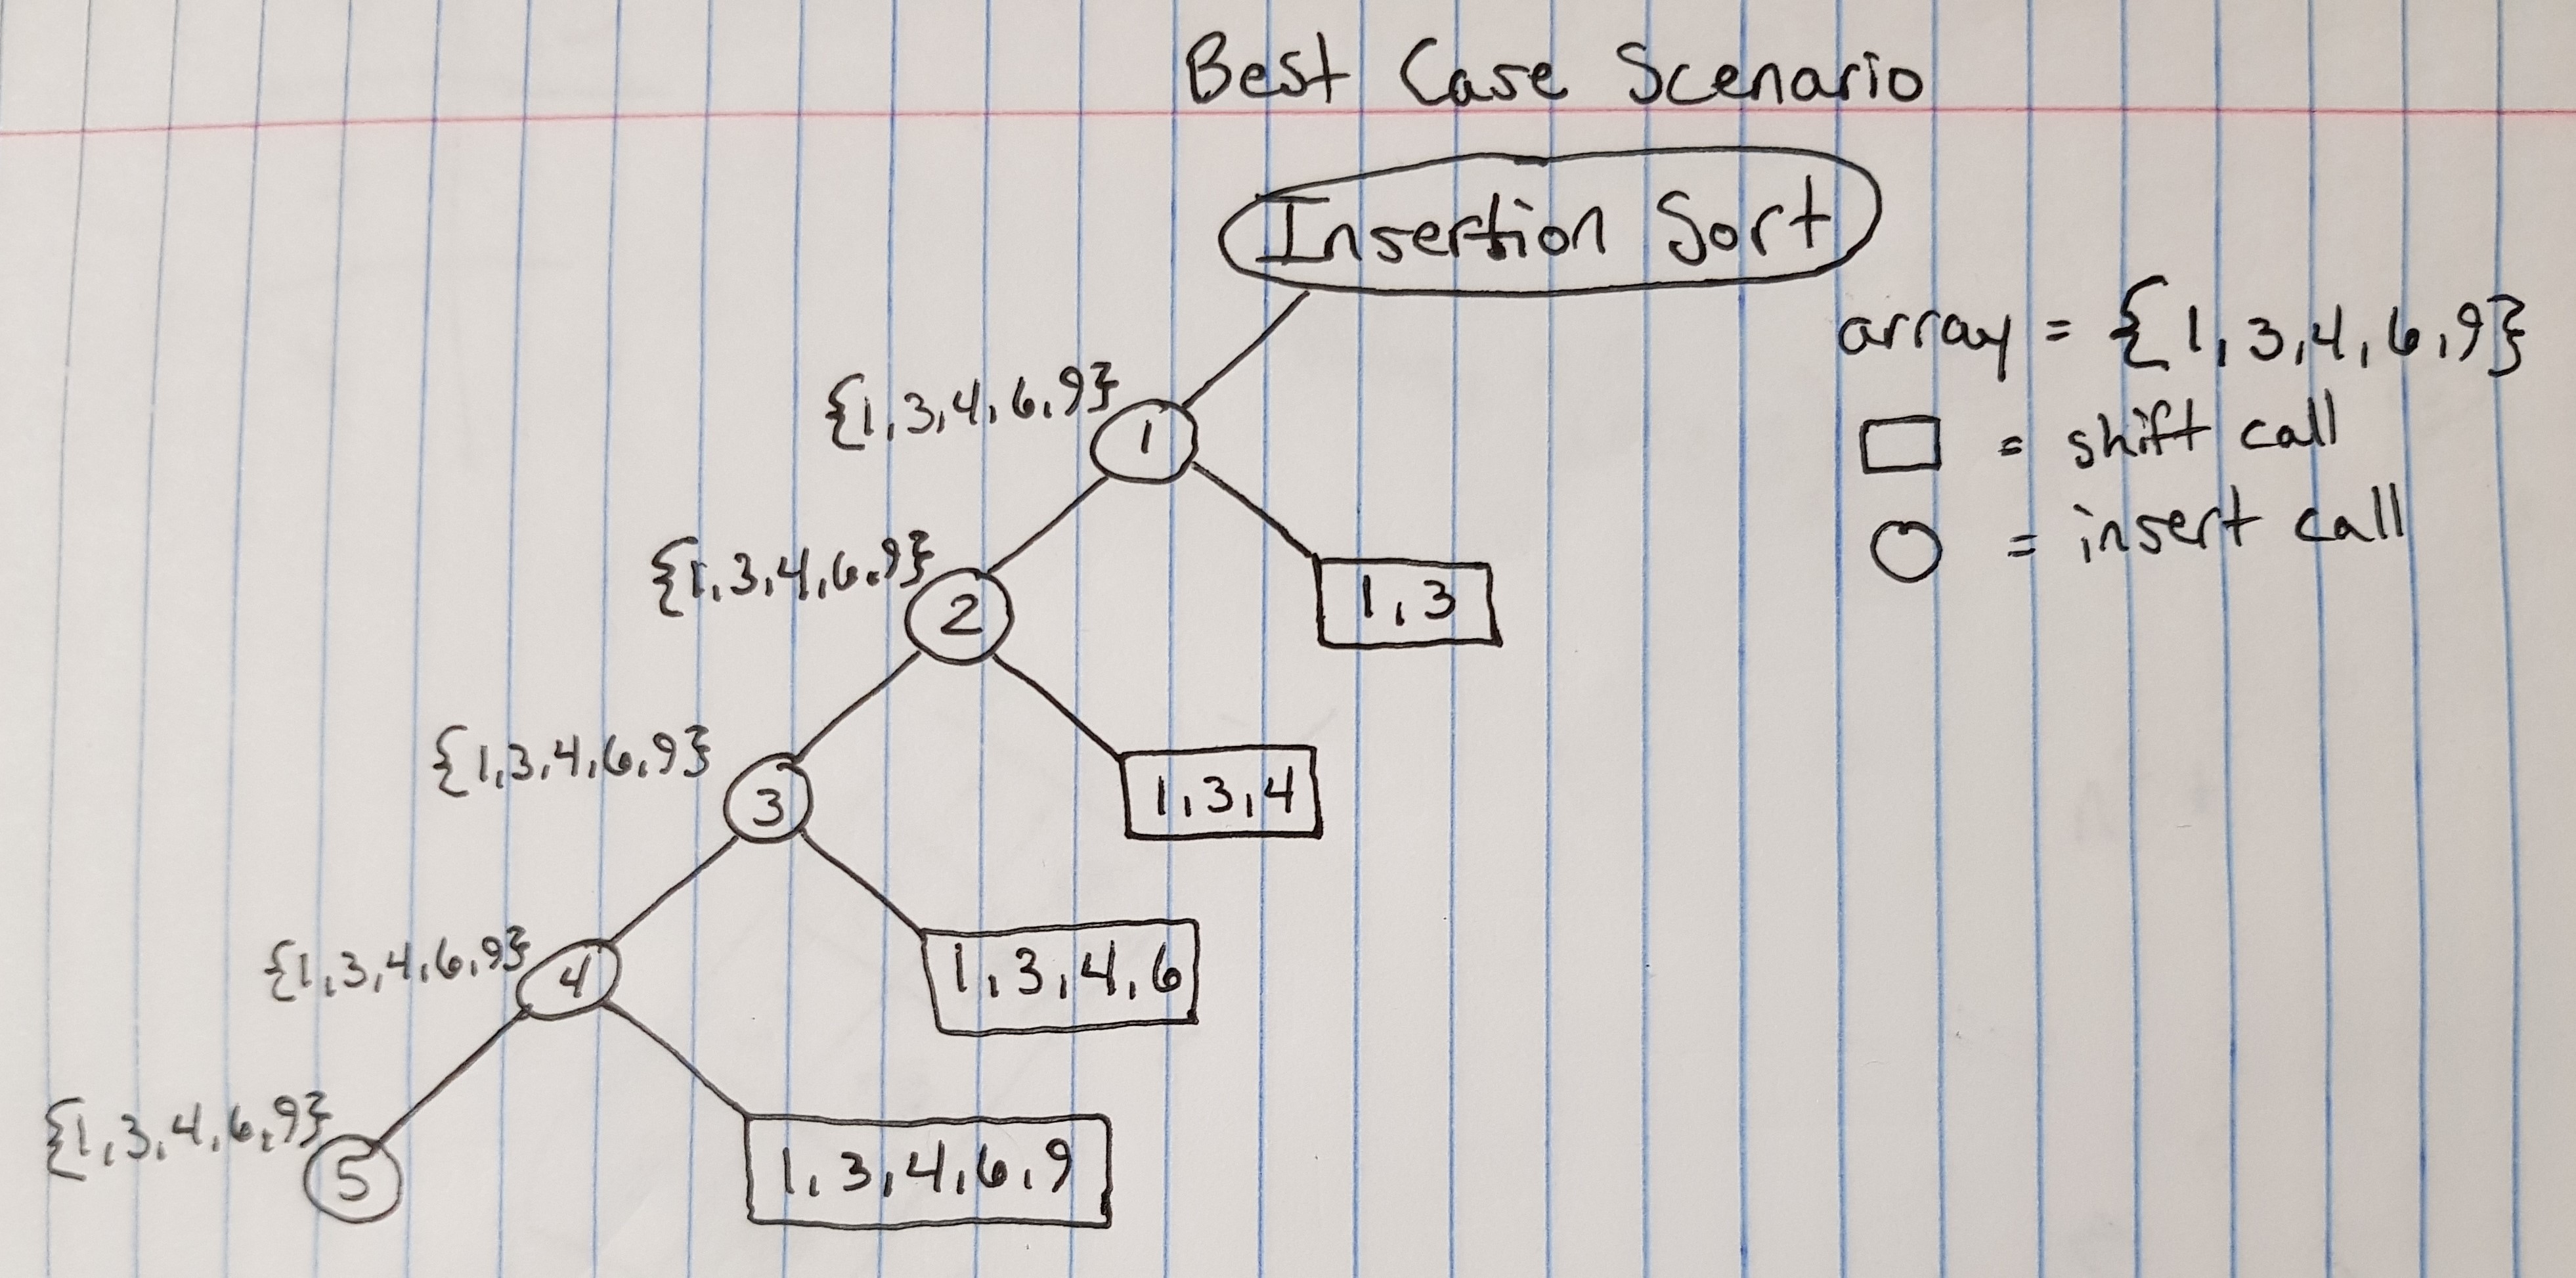 Best Case Scenario
Insertion Sort
array = {1,3,4,6,9}
= shift call
= insert call
{1,3,4,6,9}
1
{1,3,4,6,9}
2
1,3
{1,3,4,6,9}
3
1,3,4
{1,3,4,6,9}
4
1,3,4,6
{1,3,4,6,9}
5
1,3,4,6,9